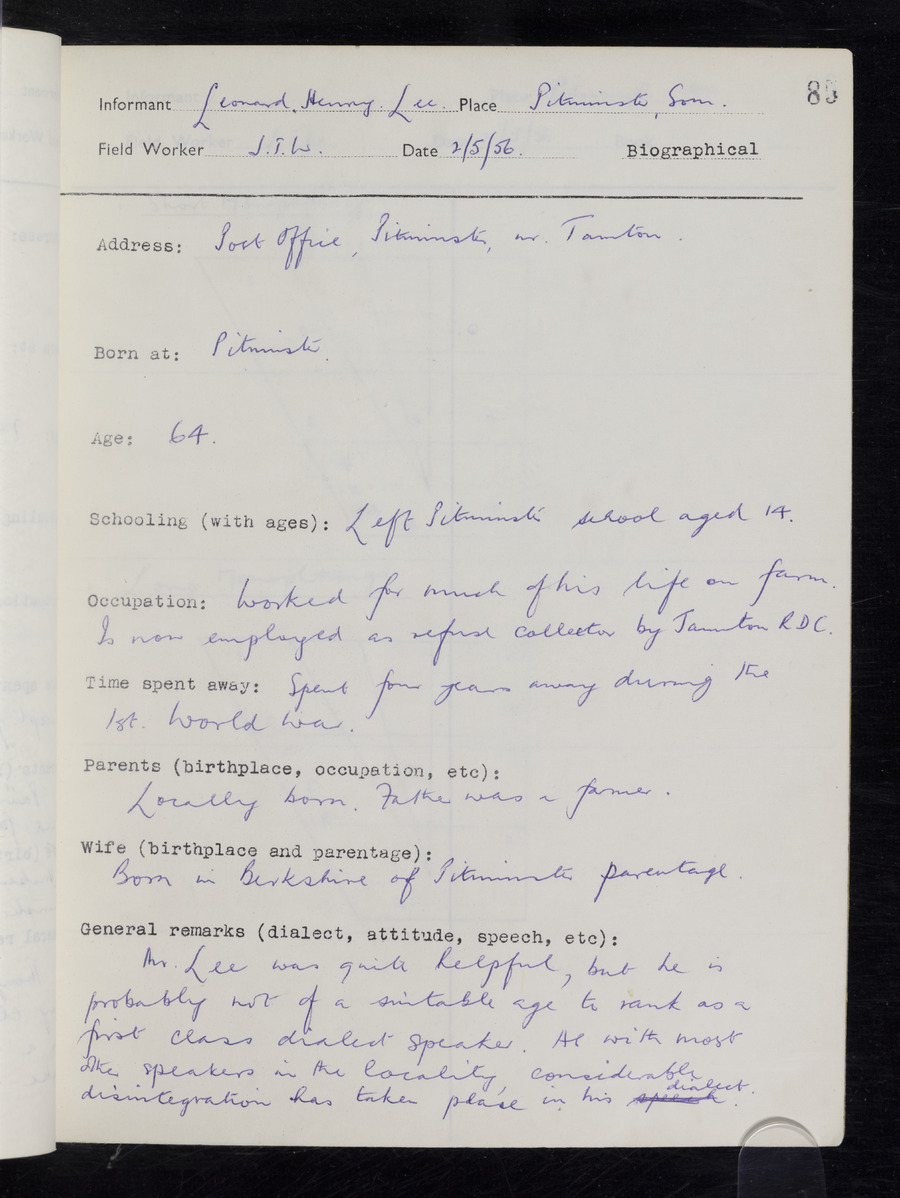 85
Informant Leonard Henry Lee Place Pitminster, Som.
Field Worker J.T.W. Date 2/5/56. Biographical
Address: Post Office, Pitminster, nr. Taunton.
Born at: Pitminster.
Age: 64.
Schooling (with ages): Left Pitminster school aged 14.
Occupation: Worked for much of his life on farm.
Is now employed as refuse collector by Taunton R D C.
Time spent away: Spent four years away during the
1st. World War.
Parents (birthplace, occupation, etc):
Locally born. Father was a farmer.
Wife (birthplace and parentage):
Born in Berkshire of Pitminster parentage.
General remarks (dialect, attitude, speech, etc):
Mr. Lee was quite helpful, but he is
probably not of a suitable age to rank as a
first class dialect speaker. As with most
other speakers in the locality, considerable
disintegration has taken place in his speech dialect.